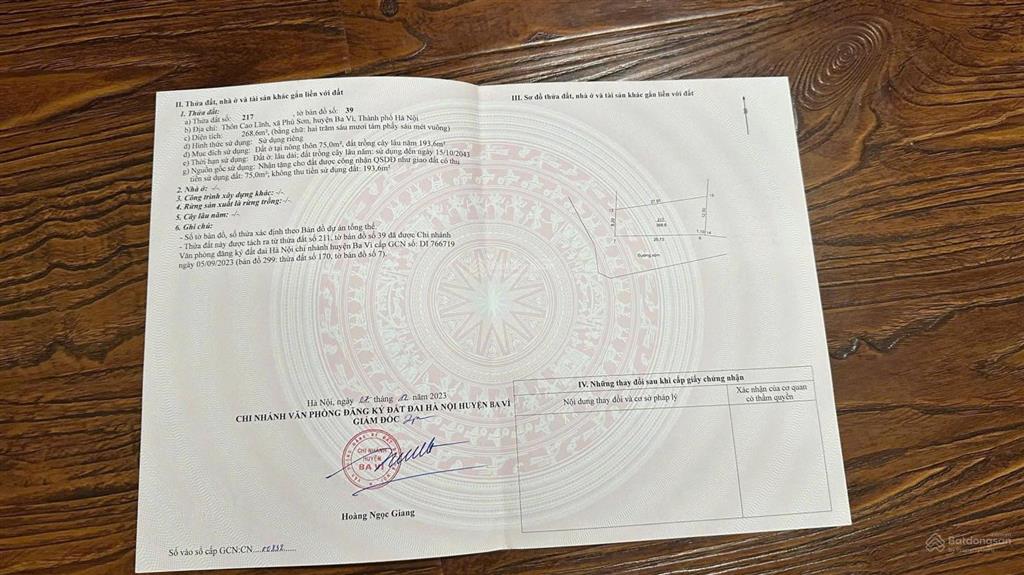 II. Thửa đất, nhà ở và tài sản khác gắn liền với đất
1. Thửa đất:
a) Thửa đất số: 217 , tờ bản đồ số: 39
b) Địa chỉ: Thôn Cao Lĩnh, xã Phú Sơn, huyện Ba Vì, Thành phố Hà Nội
c) Diện tích: 268,6m², (bằng chữ: hai trăm sáu mươi tám phẩy sáu mét vuông)
d) Hình thức sử dụng: Sử dụng riêng
đ) Mục đích sử dụng: Đất ở tại nông thôn 75,0m², đất trồng cây lâu năm 193,6m²
e) Thời hạn sử dụng: Đất ở: lâu dài; đất trồng cây lâu năm: sử dụng đến ngày 15/10/2043
g) Nguồn gốc sử dụng: Nhận tặng cho đất được công nhận QSDĐ như giao đất có thu
tiền sử dụng đất: 75,0m²; không thu tiền sử dụng đất: 193,6m²
2. Nhà ở: -/-
3. Công trình xây dựng khác: -/-
4. Rừng sản xuất là rừng trồng:-/-
5. Cây lâu năm: -/-
6. Ghi chú:
- Số tờ bản đồ, số thửa xác định theo Bản đồ dự án tổng thể.
- Thửa đất này được tách ra từ thửa đất số 211, tờ bản đồ số 39 đã được Chi nhánh
Văn phòng đăng ký đất đai Hà Nội chi nhánh huyện Ba Vì cấp GCN số: DI 766719
ngày 05/09/2023 (bản đồ 299: thửa đất số 170, tờ bản đồ số 7).
Hà Nội, ngày 27 tháng 12 năm 2023
CHI NHÁNH VĂN PHÒNG ĐĂNG KÝ ĐẤT ĐAI HÀ NỘI HUYỆN BA VÌ
GIÁM ĐỐC
CHI NHÁNH
HUYỆN
BA VÌ
Hoàng Ngọc Giang
Số vào sổ cấp GCN:CN
III. Sơ đồ thửa đất, nhà ở và tài sản khác gắn liền với đất
217
268.6
Đường xóm
IV. Những thay đổi sau khi cấp giấy chứng nhận
Nội dung thay đổi và cơ sở pháp lý
Xác nhận của cơ quan
có thẩm quyền
Batdongsan